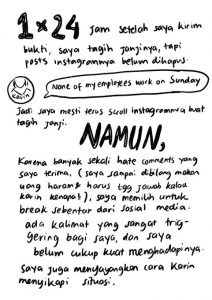 1 x 24 jam setelah saya kirim
bukti, saya tagih janjinya, tapi
posts instagramnya belum dihapus.
None of my employees work on Sunday
Jadi saya mesti terus scroll instagramnya buat
tagih janji.
NAMUN,
Karena banyak sekali hate comments yang
saya terima, (saya sampai dibilang makan
uang haram & harus tgg jawab kalau
karin kenapa2), saya memilih untuk
break sebentar dari sosial media.
ada kalimat yang sangat trig-
gering bagi saya, dan saya
belum cukup kuat menghadapinya.
Saya juga menyayangkan cara Karin
menyikapi situasi.